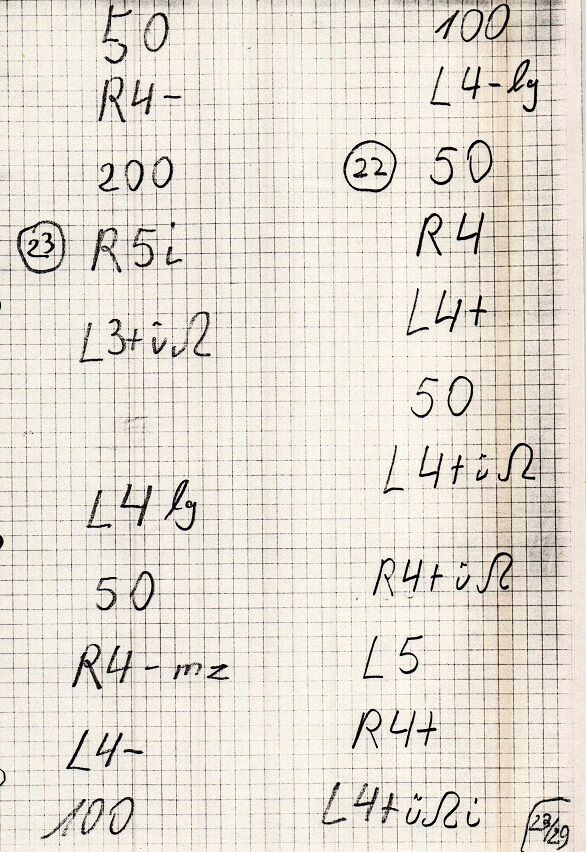 50
R4-
200
23 R5i
L3+üΩ
L4 lg
50
R4-mz
L4-
100
100
L4-lg
22 50
R4
L4+
50
L4+üΩ
R4+üΩ
L5
R4+
L4+üΩi
23/29